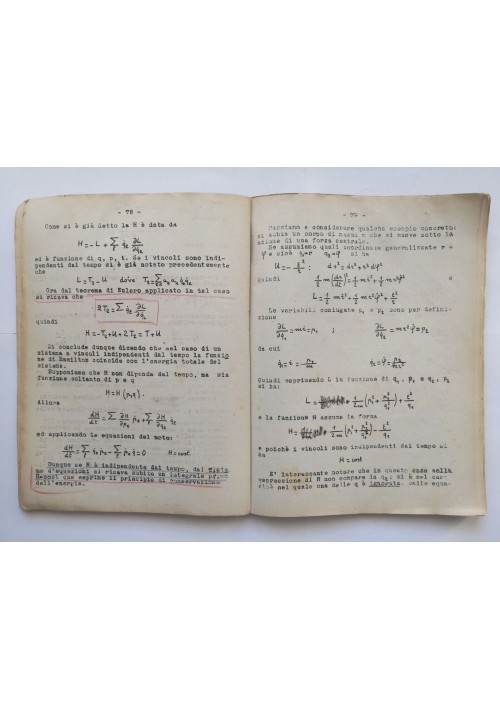 - 78 -
Come si è già detto la H è data da
H = - L + ∑ q̇ᵣ ∂L/∂q̇ᵣ
ed è funzione di q, p, t. Se i vincoli sono indi-
pendenti dal tempo si è già notato precedentemente
che
L = T₂ - U dove T₂ =
Ora dal teorema di Eulero applicato in tal caso
si ricava che
2T₂ = ∑ q̇ᵣ ∂L/∂q̇ᵣ
quindi
H = -T₂ + U + 2T₂ = T + U
Si conclude dunque dicendo che nel caso di un
sistema a vincoli indipendenti dal tempo la funzio
ne di Hamilton coincide con l'energia totale del
sistema.
Supponiamo che H non dipenda dal tempo, ma sia
funzione soltanto di p e q
H = H (p,q).
Allora
dH/dt = ∑ ∂H/∂pᵣ ṗᵣ + ∑ ∂H/∂qᵣ q̇ᵣ
ed applicando le equazioni del moto:
dH/dt = ∑ q̇ᵣ ṗᵣ - ∑ ṗᵣ q̇ᵣ = 0 H = cost.
Dunque se H è indipendente dal tempo, dal
d'equazioni si ricava subito un integrale
H=cost che esprime il principio di conservazione
dell'energia.
- 79 -
Passiamo a considerare qualche esempio concreto:
si abbia un corpo di massa m che si muove sotto la
azione di una forza centrale.
Se assumiamo quali coordinate generalizzate r e
φ e cioè q₁=r q₂=φ si ha
U = - ε²/r ; dℓ² = dr² + r² dφ²
quindi e
L =
Le variabili coniugate p₁ e p₂ sono per defini-
zione
∂L/∂q̇₁ = mṙ = p₁ ; ∂L/∂q̇₂ = mr²φ̇ = p₂
da cui
q̇₁ = ṙ = p₁/m q̇₂ = φ̇ =
Quindi esprimendo L in funzione di q₁, p₁ e q₂, p₂
si ha:
L = 1/2m (p₁² + p₂²/q₁²) + ε²/q₁
e la funzione H assume la forma
H = 1/2m (p₁² + p₂²/q₁²) - ε²/q₁
e poichè i vincoli sono indipendenti dal tempo si
ha
H = cost
E' interessante notare che in questo caso nella
espressione di H non compare la q₂; si è nel
cioè nel quale una delle q è ignorata. Dalle equa-